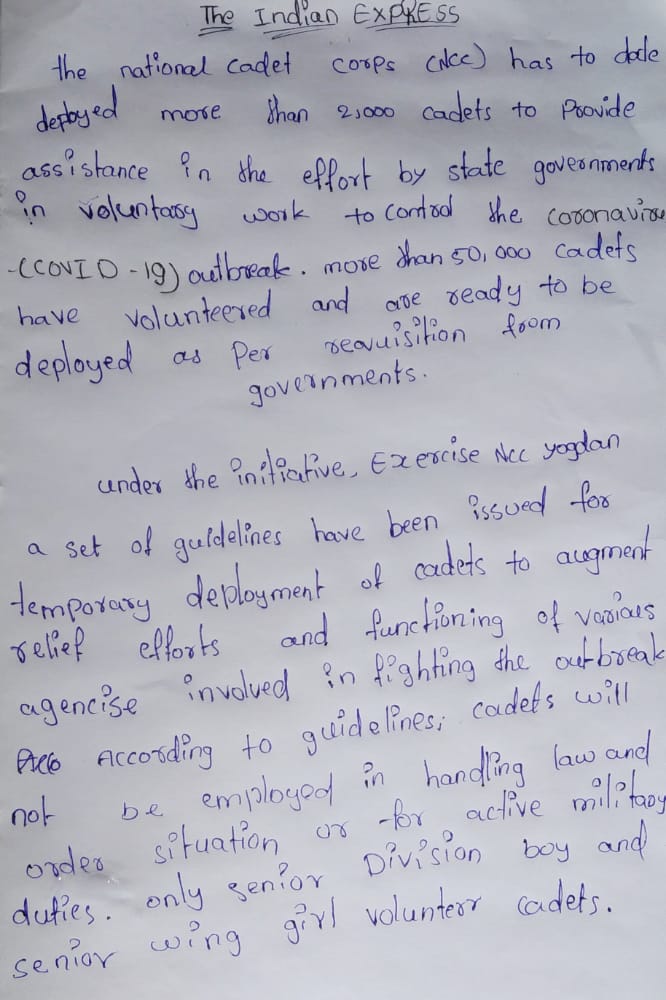 The Indian EXPRESS
the national cadet corps (NCC) has to date
deployed more than 2,000 cadets to Provide
assistance in the effort by state governments
in voluntary work to control the coronavirus
-(COVID-19) outbreak. more than 50,000 cadets
have volunteered and are ready to be
deployed as Per reavuisition from
governments.
under the initiative, Exercise NCC yogdan
a set of guidelines have been issued for
temporary deployment of cadets to augment
relief efforts and functioning of various
agencise involved in fighting the outbreak
According to guidelines, cadets will
not be employed in handling law and
order situation or for active military
duties. only senior Division boy and
senior wing girl volunterr cadets.